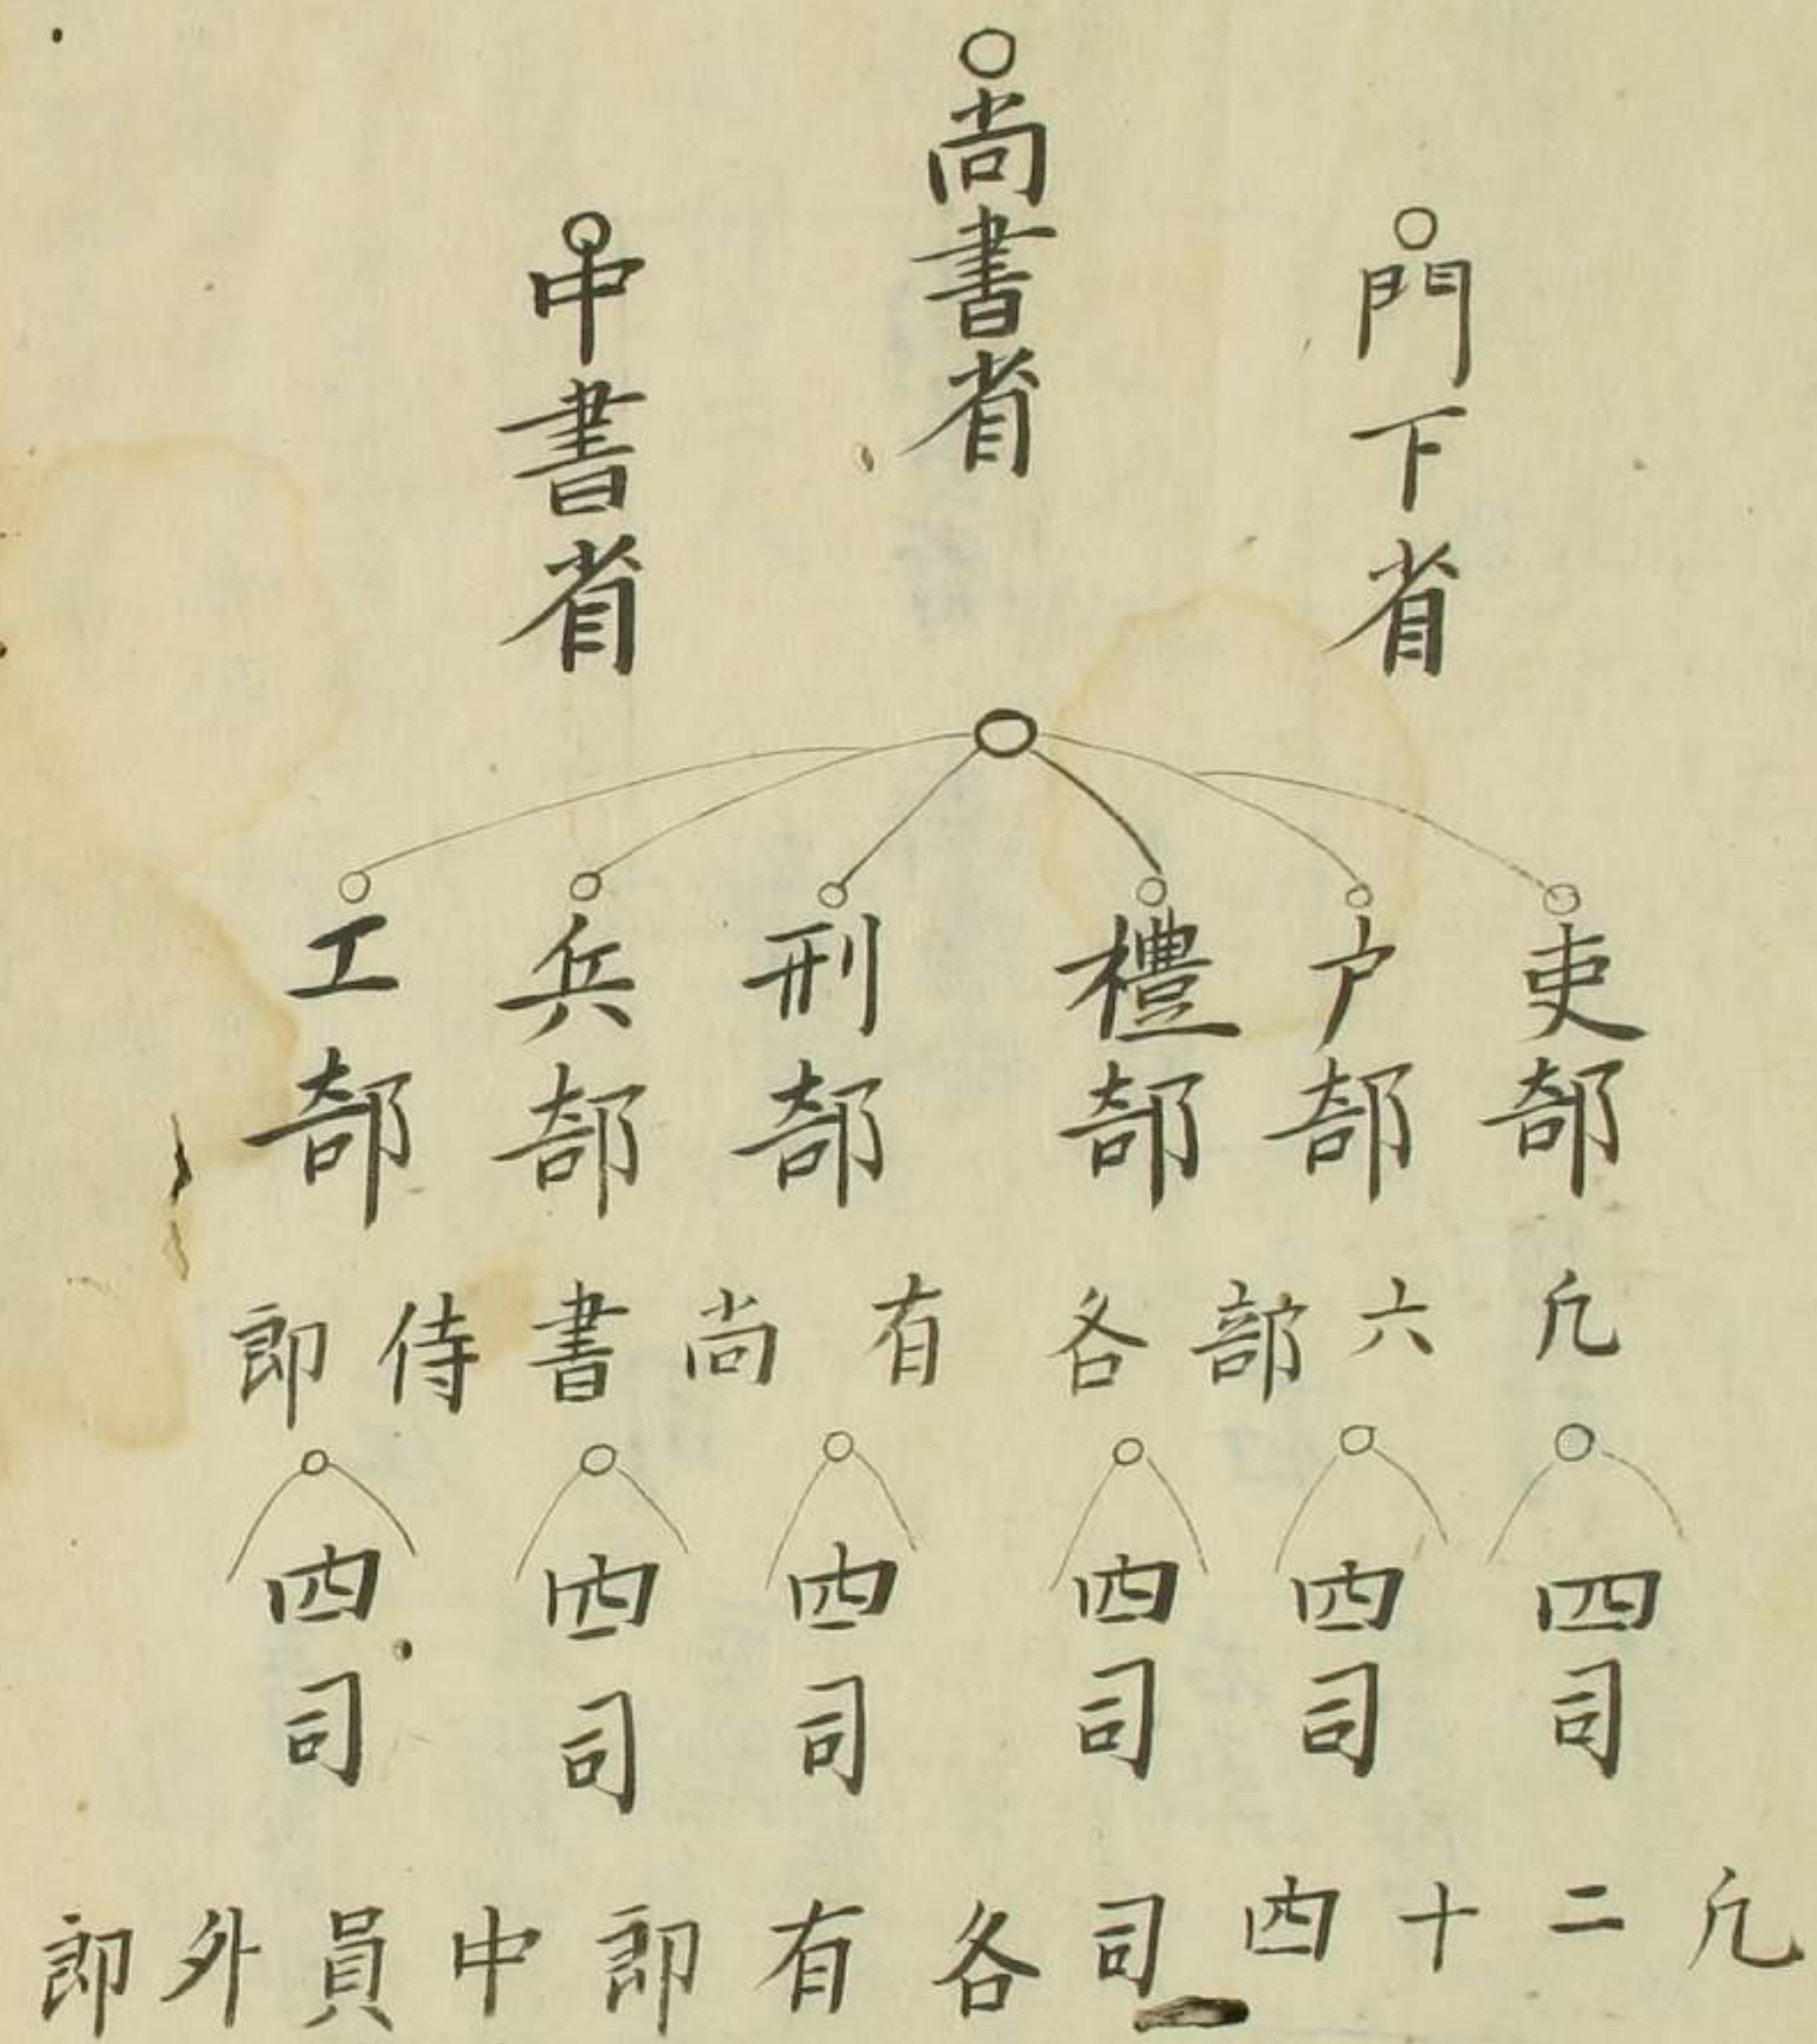 門下省
尚書省
中書省
吏部
户部
禮部
刑部
兵部
工部
凡六部各有尚書侍郎
四司
四司
四司
四司
四司
四司
凡二十四司各有郎中員外郎